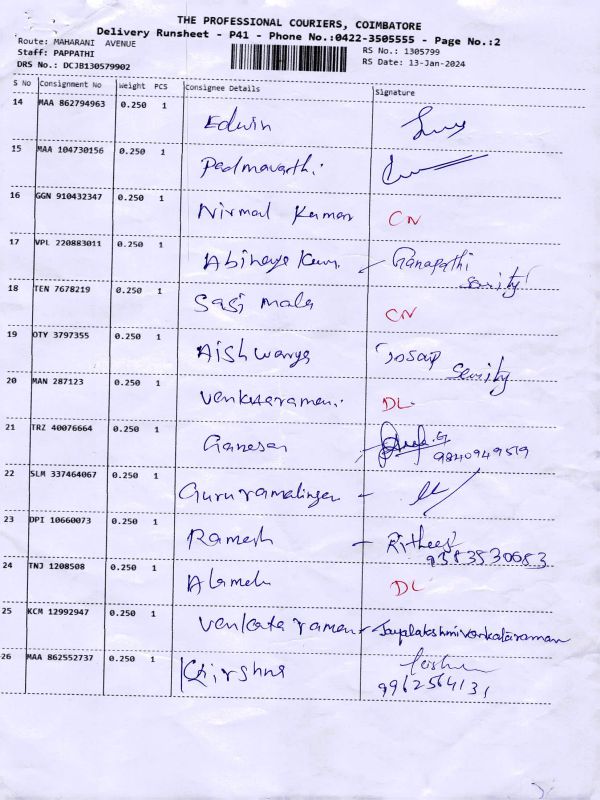 THE PROFESSIONAL COURIERS, COIMBATORE
Delivery Runsheet - P41 - Phone No.:0422-3505555 - Page No.:2
Route: MAHARANI AVENUE
Staff: PAPPATHI
DRS No.: DCJB130579902
RS No.: 1305799
RS Date: 13-Jan-2024
S No Consignment No Weight PCS Consignee Details Signature
14 MAA 862794963 0.250 1 Edwin
15 MAA 104730156 0.250 1 Padmavathi.
16 GGN 910432347 0.250 1 Nirmal Kumar CN
17 VPL 220883011 0.250 1 Ganapathi
18 TEN 7678219 0.250 1 Sasi mala CN
19 OTY 3797355 0.250 1 Aishwarya
20 MAN 287123 0.250 1 Venkataraman. DL.
21 TRZ 40076664 0.250 1 Ganesan
9840949519
22 SLM 337464067 0.250 1 Gururamalingam -
23 DPI 10660073 0.250 1 Ramesh -
9383530683
24 TNJ 1208508 0.250 1 DL
25 KCM 12992947 0.250 1 Venkata raman - Jayalakshmi Venkataraman
26 MAA 862552737 0.250 1
9962564131